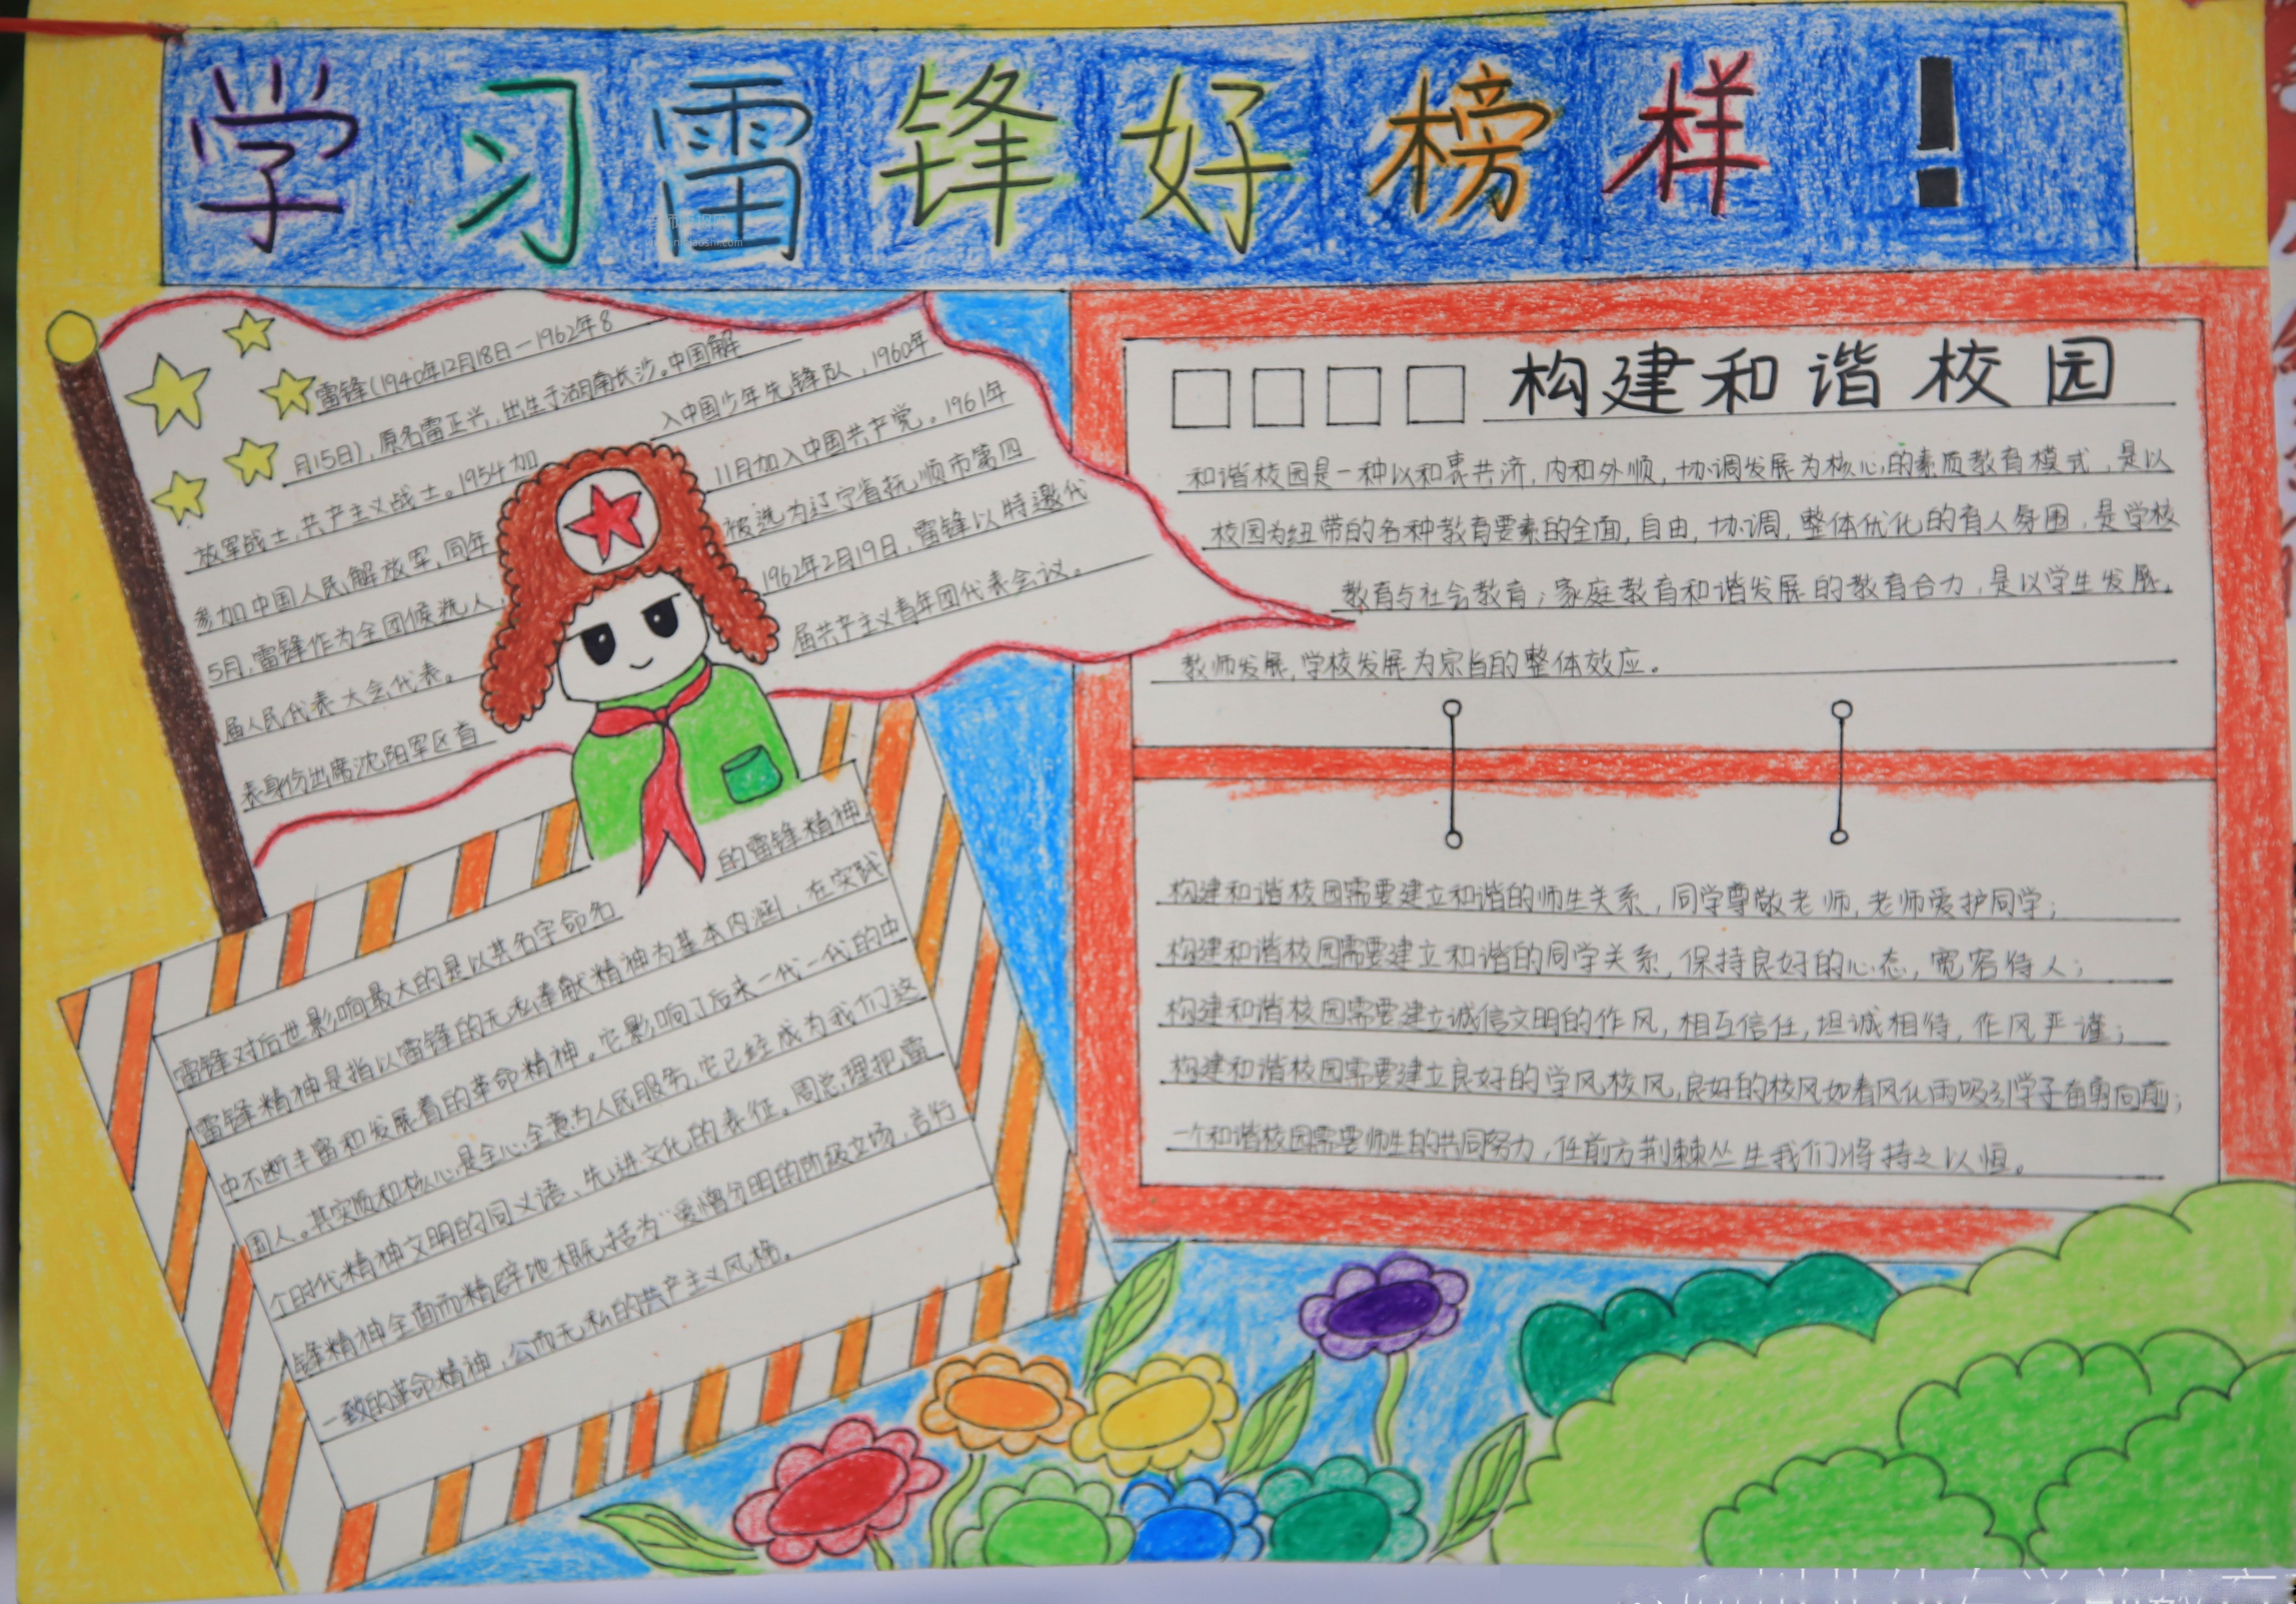 学习雷锋好榜样！
雷锋(1940年12月18日－1962年8
月15日)，原名雷正兴，出生于湖南长沙。中国解
放军战士，共产主义战士。1954加
入中国少年先锋队，1960年
参加中国人民解放军，同年
11月加入中国共产党。1961年
5月，雷锋作为全团候选人，
被选为辽宁省抚顺市第四
届人民代表大会代表。
1962年2月19日，雷锋以特邀代
表身份出席沈阳军区首
届共产主义青年团代表会议。
雷锋对后世影响最大的是以其名字命名
的雷锋精神。
雷锋精神是指以雷锋的无私奉献精神为基本内涵，在实践
中不断丰富和发展着的革命精神。它影响了后来一代一代的中
国人。其实质和核心是全心全意为人民服务，它已经成为我们这
个时代精神文明的同义语、先进文化的表征。周总理把雷
锋精神全面而精辟地概括为“爱憎分明的阶级立场，言行
一致的革命精神，公而无私的共产主义风格。
构建和谐校园
和谐校园是一种以和衷共济，内和外顺，协调发展为核心的素质教育模式，是以
校园为纽带的各种教育要素的全面，自由，协调，整体优化的育人氛围，是学校
教育与社会教育；家庭教育和谐发展的教育合力，是以学生发展，
教师发展，学校发展为宗旨的整体效应。
构建和谐校园需要建立和谐的师生关系，同学尊敬老师，老师爱护同学；
构建和谐校园需要建立和谐的同学关系，保持良好的心态，宽容待人；
构建和谐校园需要建立诚信文明的作风，相互信任，坦诚相待，作风严谨；
构建和谐校园需要建立良好的学风校风，良好的校风如春风化雨吸引学子奋勇向前；
一个和谐校园需要师生的共同努力，任前方荆棘丛生我们将持之以恒。